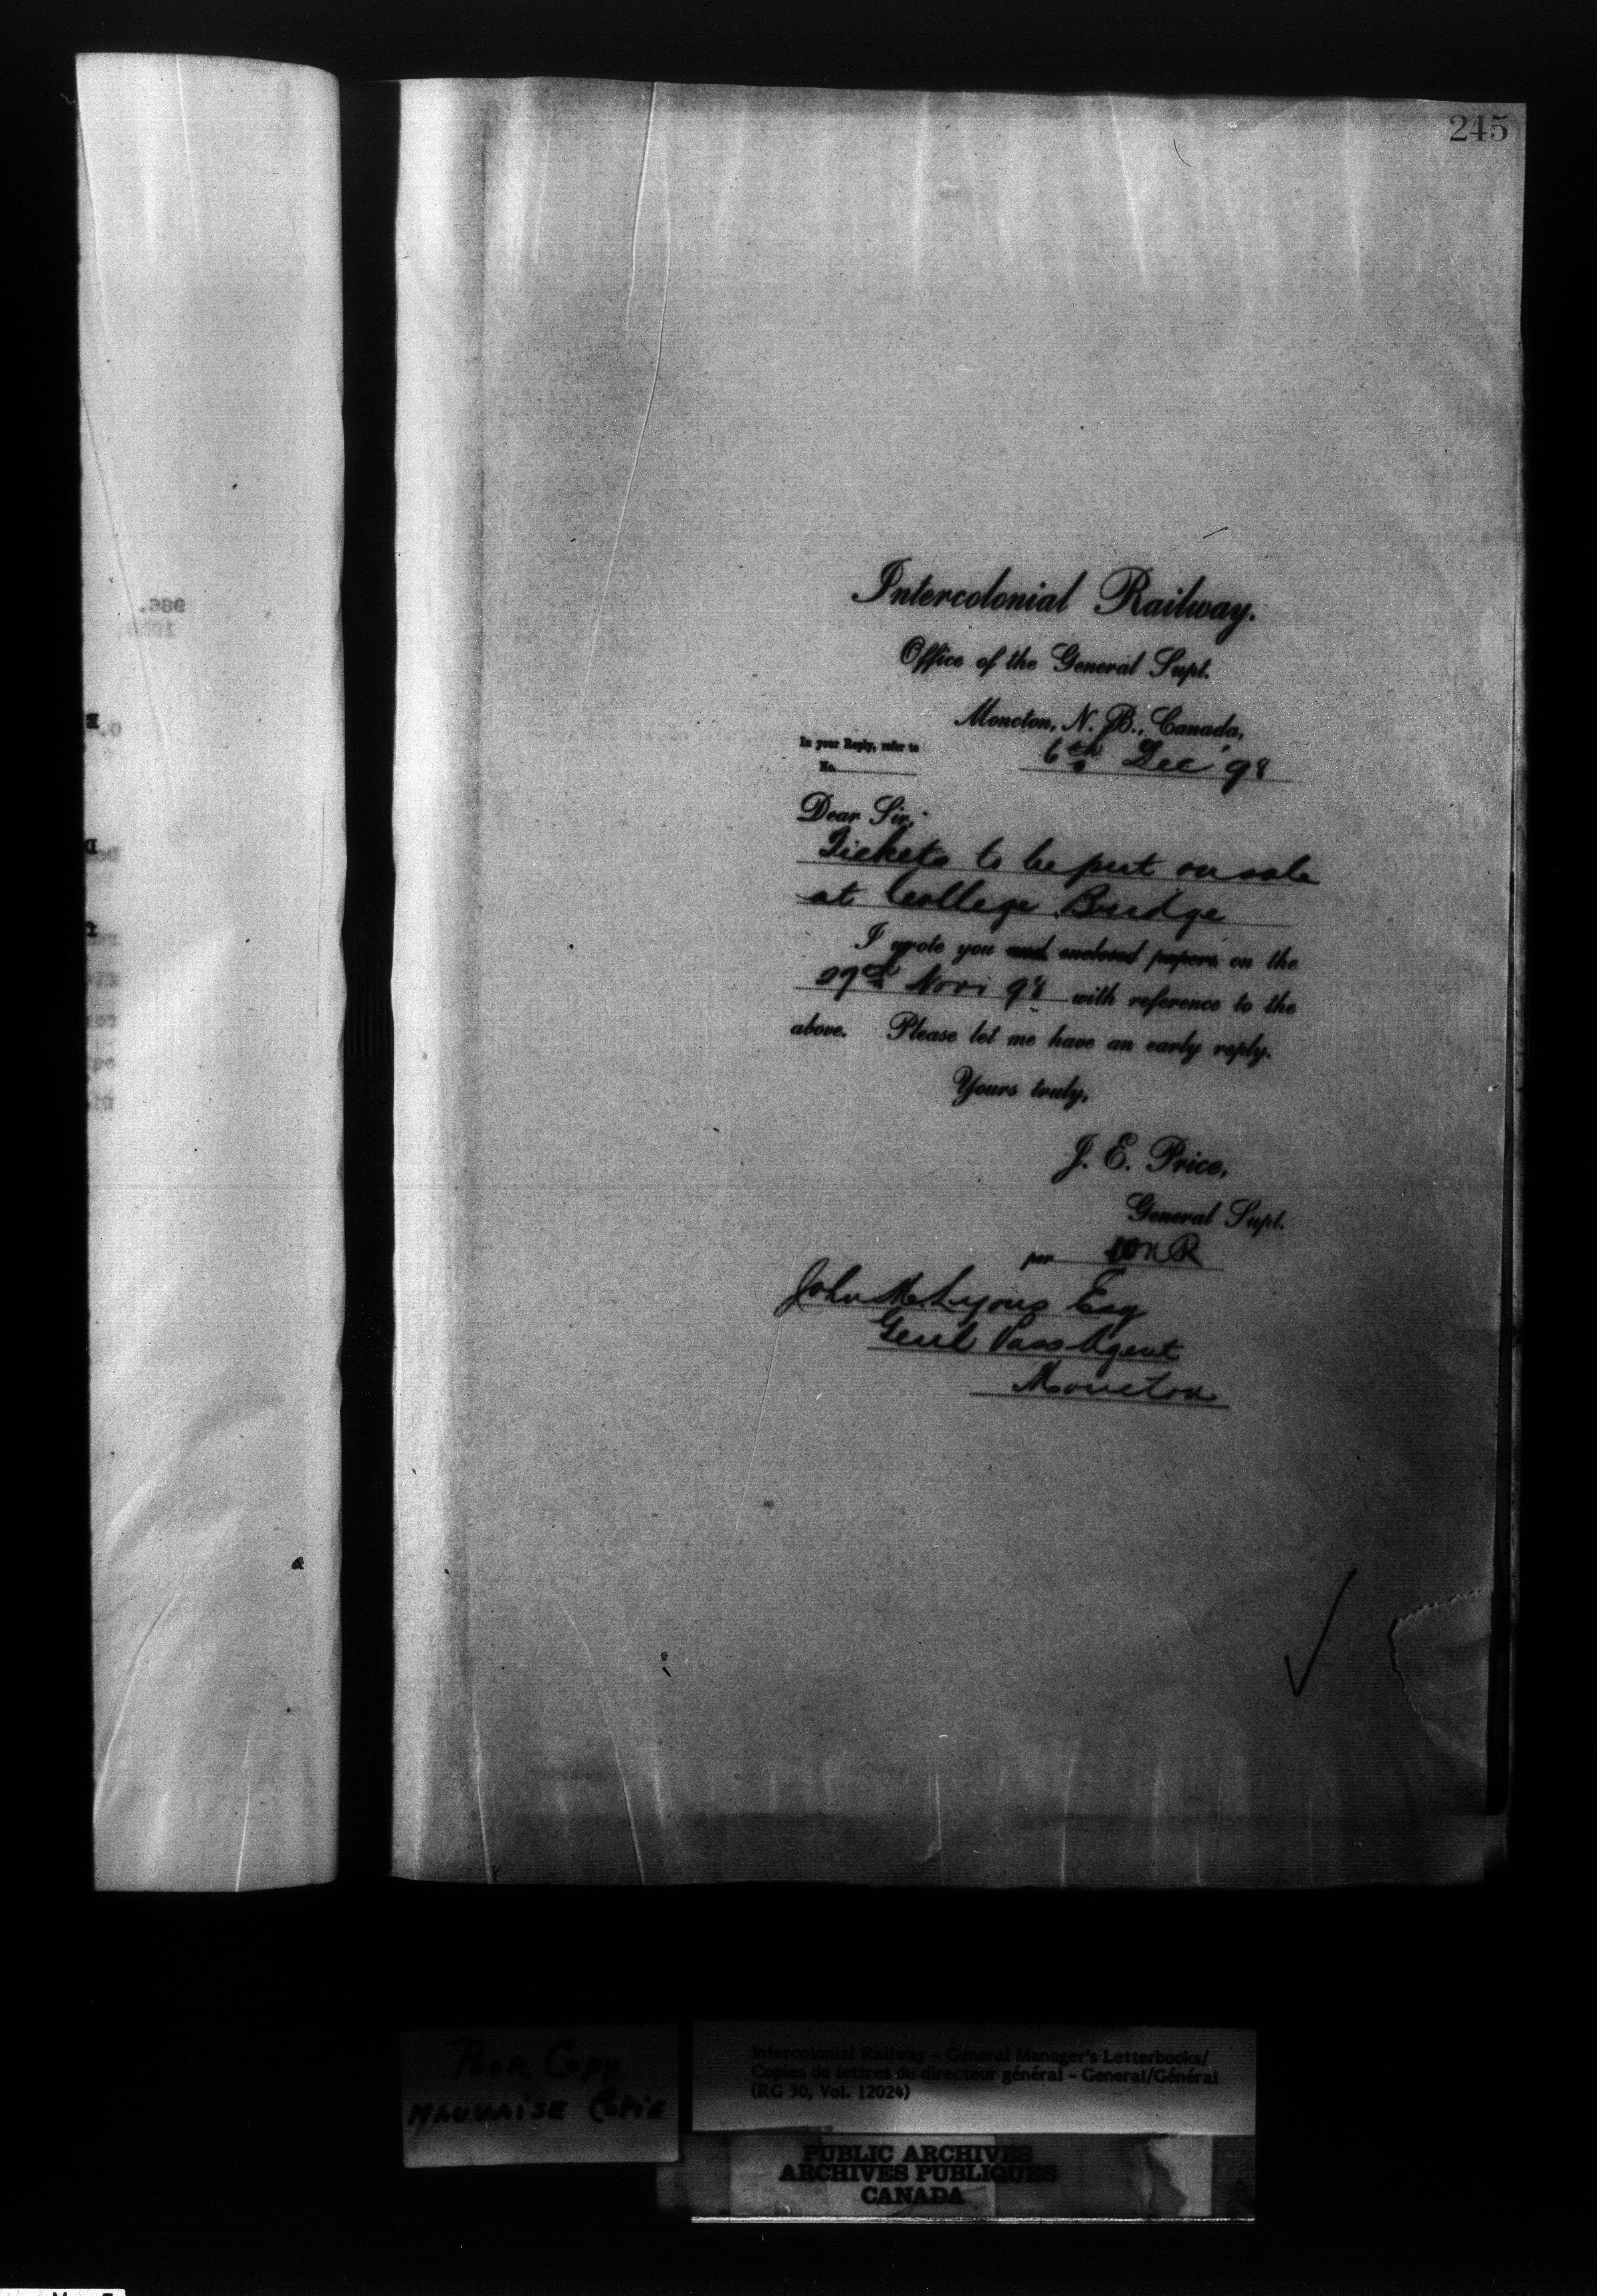 245
Intercolonial Railway.
Office of the General Supt.
Moncton, N. B., Canada,
In your Reply, refer to
No.
6th Dec '98
Dear Sir,
Tickets to be put on sale
at College Bridge
I wrote you and enclosed papers on the
29th Nov 98 with reference to the
above. Please let me have an early reply.
Yours truly,
J. E. Price,
General Supt.
per WnR
John M Lyons Esq
Genl Pass Agent
Moncton
Poor Copy
Mauvaise Copie
Intercolonial Railway - General Manager's Letterbooks/
Copies de lettres du directeur général - General/Général
(RG 30, Vol. 12024)
PUBLIC ARCHIVES
ARCHIVES PUBLIQUES
CANADA